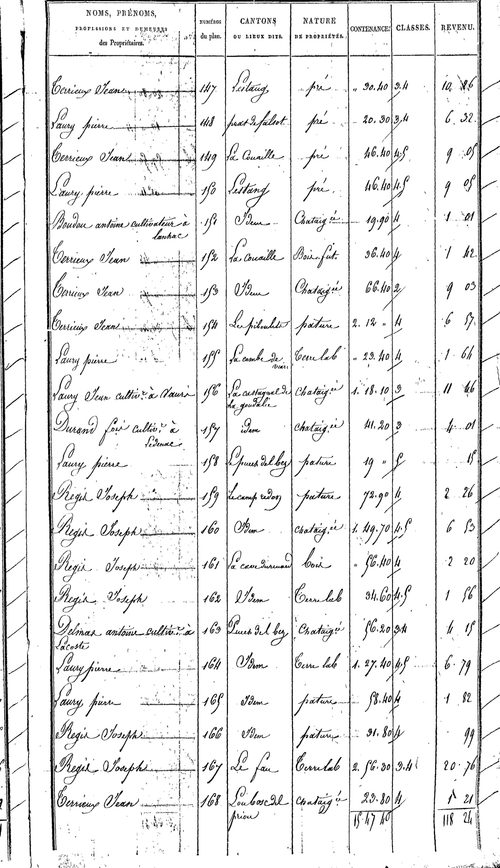 NOMS, PRÉNOMS, PROFESSIONS ET DEMEURES des Propriétaires. NUMÉROS du plan. CANTONS OU LIEUX DITS. NATURE DE PROPRIÉTÉS. CONTENANCE. CLASSES. REVENU.
Terrieux Jean 147 Lestang pré " 30.40 3.4 10 86
Laury pierre 148 prat de pré " 20.30 3.4 6 32
Terrieux Jean 149 La Couaille pré 46.40 4.5 9 05
Laury pierre 150 Lestang pré 46.40 4.5 9 05
Boudou antoine cultivateur à 151 Idem Chataig.ée 19.90 4 1 01
Lanhac
Terrieux Jean 152 La Couaille Bois fut. 36.40 4 1 42
Terrieux Jean 153 Idem Chataig.ée 66.40 2 9 03
Terrieux Jean 154 pature 2. 12 " 4 6 57
Laury pierre 155 La combe de Terre lab " 23.40 4 1 64
Laury Jean cultiv.r à 156 La castagnal de Chataig.ée 1. 18.10 3 11 46
Durand cultiv.r à 157 idem chataig.ée 41.20 3 4 01
Laury pierre 158 Puech del bez pature 19 " 5 15
Regis Joseph 159 Le camp redon pature 72.90 4 2 26
Regis Joseph 160 Idem chataig.ée 1. 49.70 4.5 6 53
Regis Joseph 161 La bois " 56.40 4 2 20
Regis Joseph 162 Idem Terre lab 34.60 4.5 1 56
Delmas antoine cultiv.r à 163 Puech del bez Chataig.ée 56.20 3.4 4 15
Lacoste
Laury pierre 164 Idem Terre lab 1. 27.40 4.5 6 79
Laury pierre 165 Idem pature 58.40 4 1 82
Regis Joseph 166 Idem pature 31.80 4 99
Regis Joseph 167 Le fau Terre lab 2. 56.30 3.4 20 76
Terrieux Jean 168 Lou bosc del chataig.ée 23.80 4 1 21
prieu 15 47 40 118 24